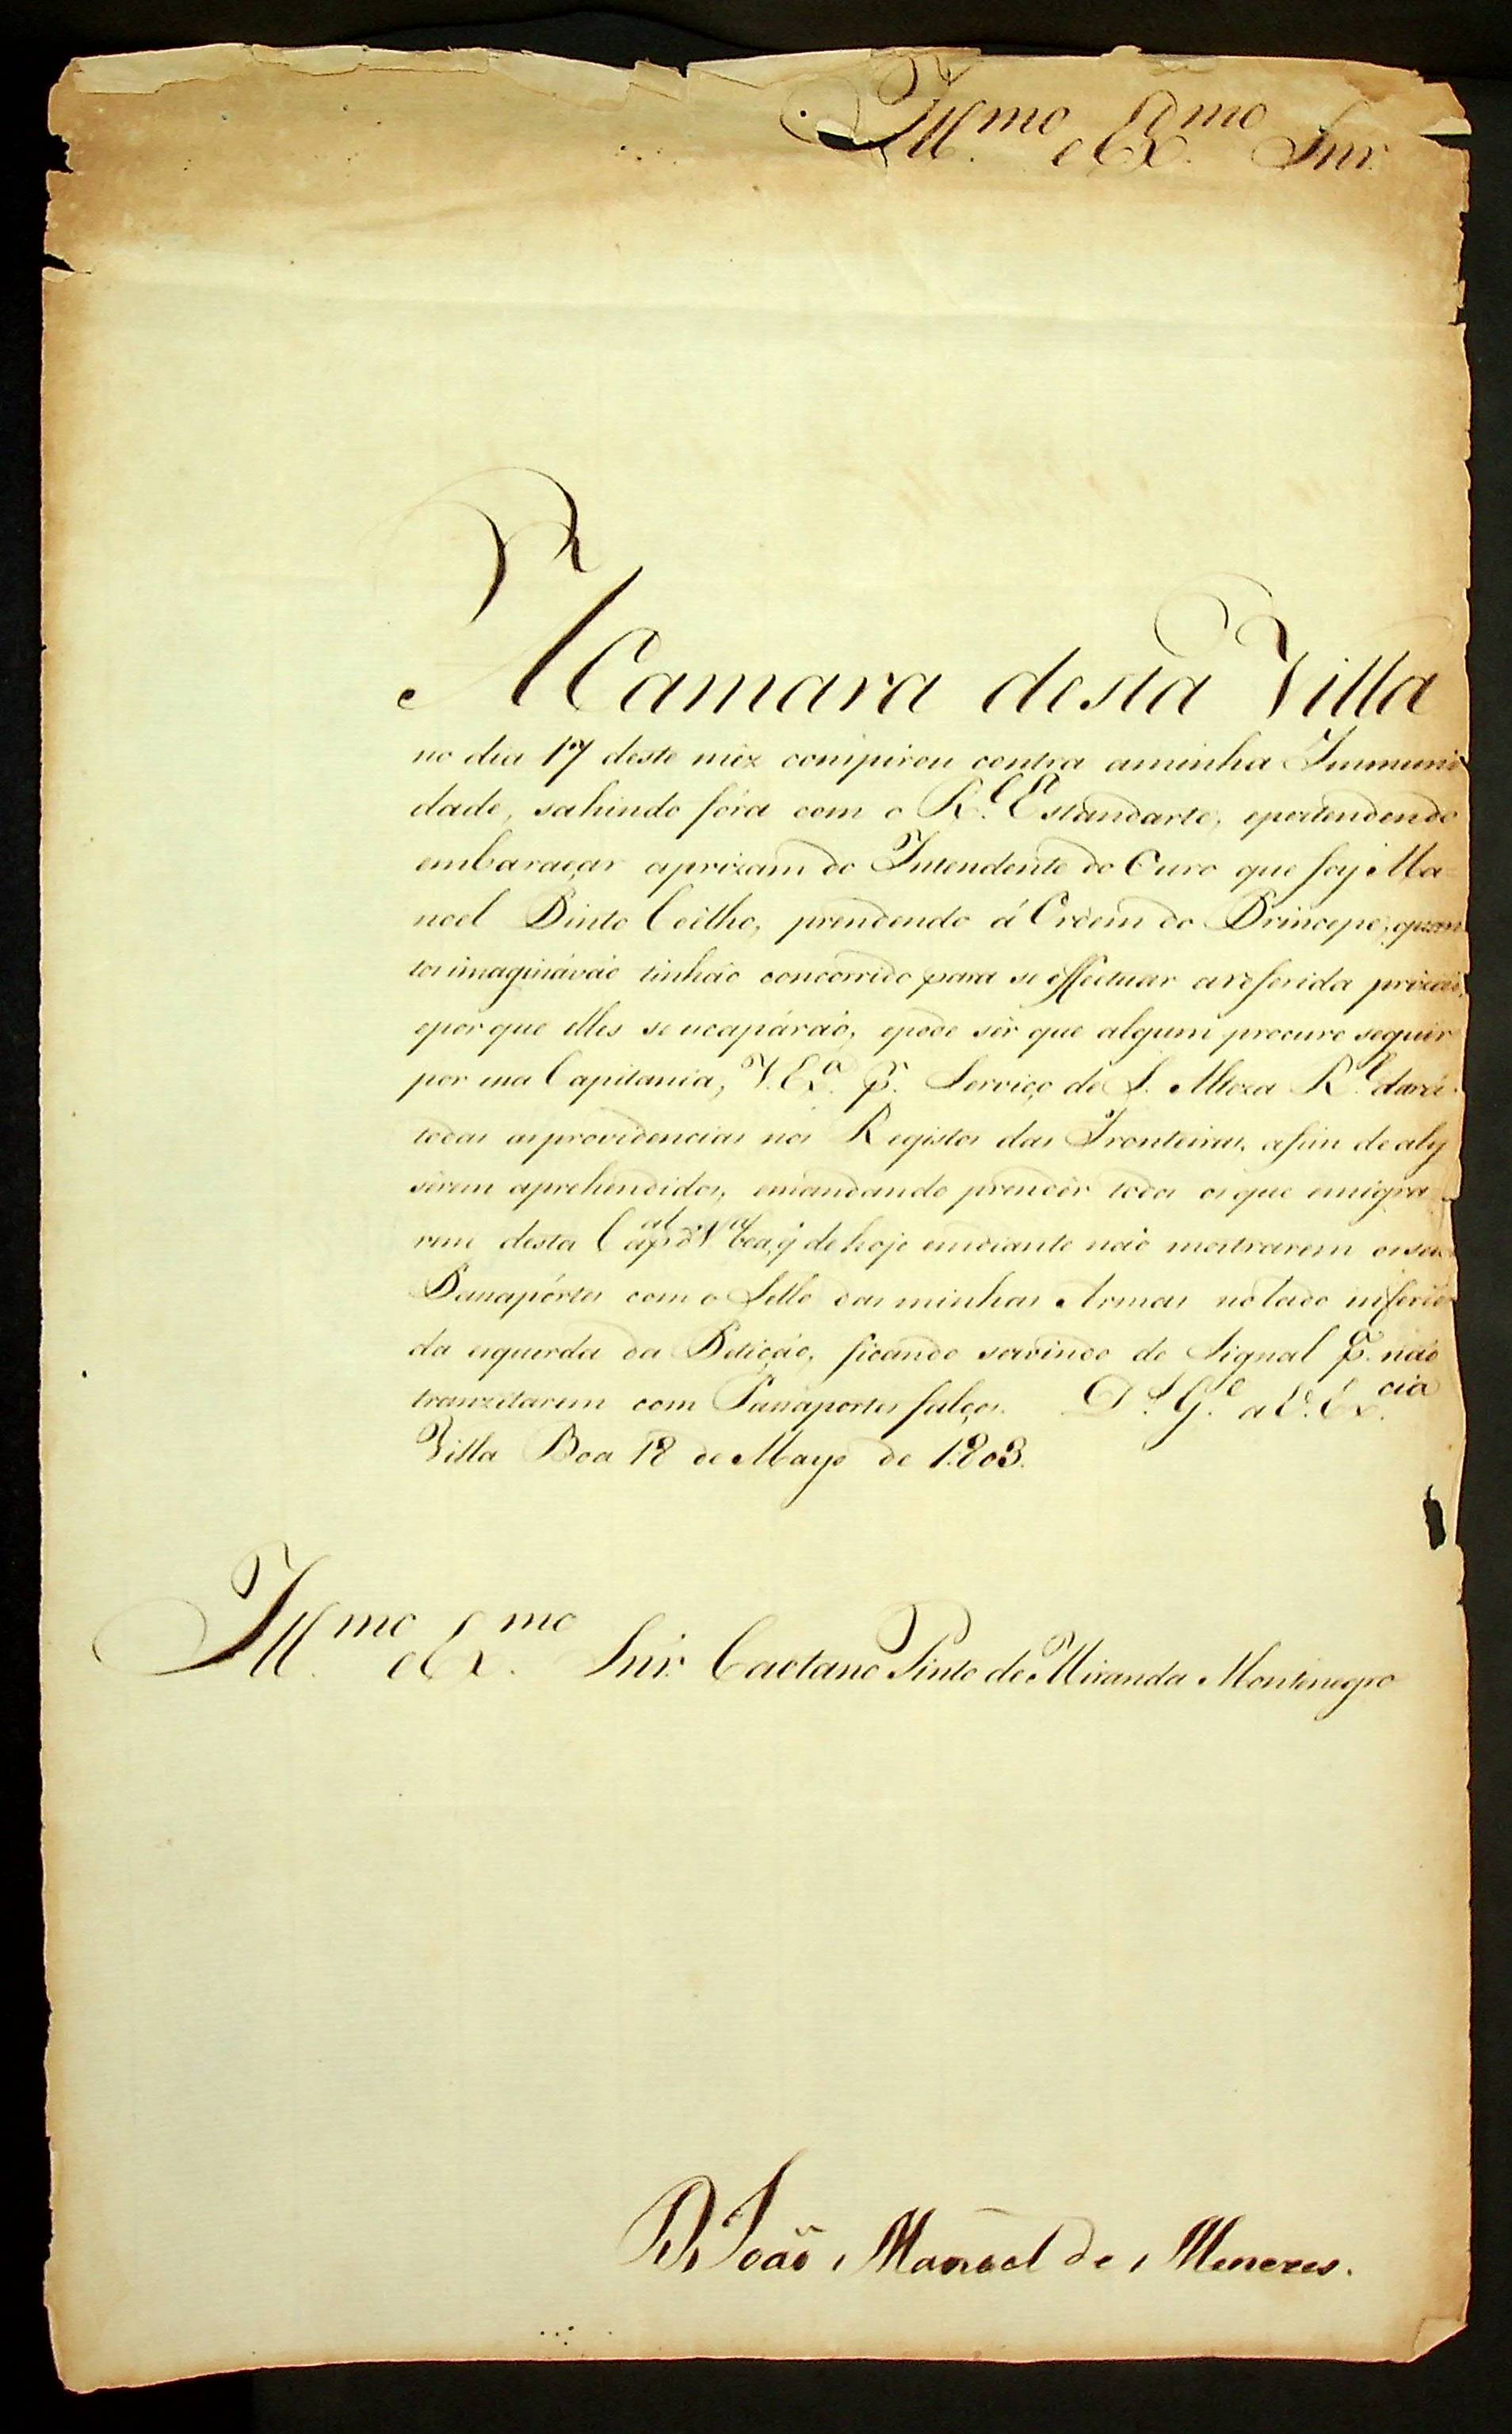 Ill.mo e Ex.mo Snr.
A Camara desta Villa
no dia 17 deste mêz conspirou contra aminha Immuni
dade, sahindo fóra com o R.l Estandarte, epertendendo
embaraçar aprizam do Intendente do Ouro que foy Ma
noel Pinto Coelho, prendendo á Ordem do Principe, quan
tos imaginávão tinhão concorrido para se effectuar areferida prizão,
eporque elles se escapárão, epode sêr que algum procure seguir
por essa Capitania, V. Ex.a p.a Serviço de S. Alteza R.l dará
todas as providencias nos Registos das Fronteiras, afim de aly
sêrem aprehendidos, emandando prendêr todos os que emigra
rem desta Cap.al d V.a boa, q̃ de hoje emdiante não mostrarem os seus
Passapórtes com o Sello das minhas Armas no lado inferiôr
da esquerda da Petição, ficando servindo de Signal p.a não
tranzitarem com Passaportes falços. D.s G.e a V. Ex.cia
Villa Boa 18 de Mayo de 1803.
Ill.mo e Ex.mo Snr. Caetano Pinto de Miranda Montenegro
D. João Manoel de Menezes.